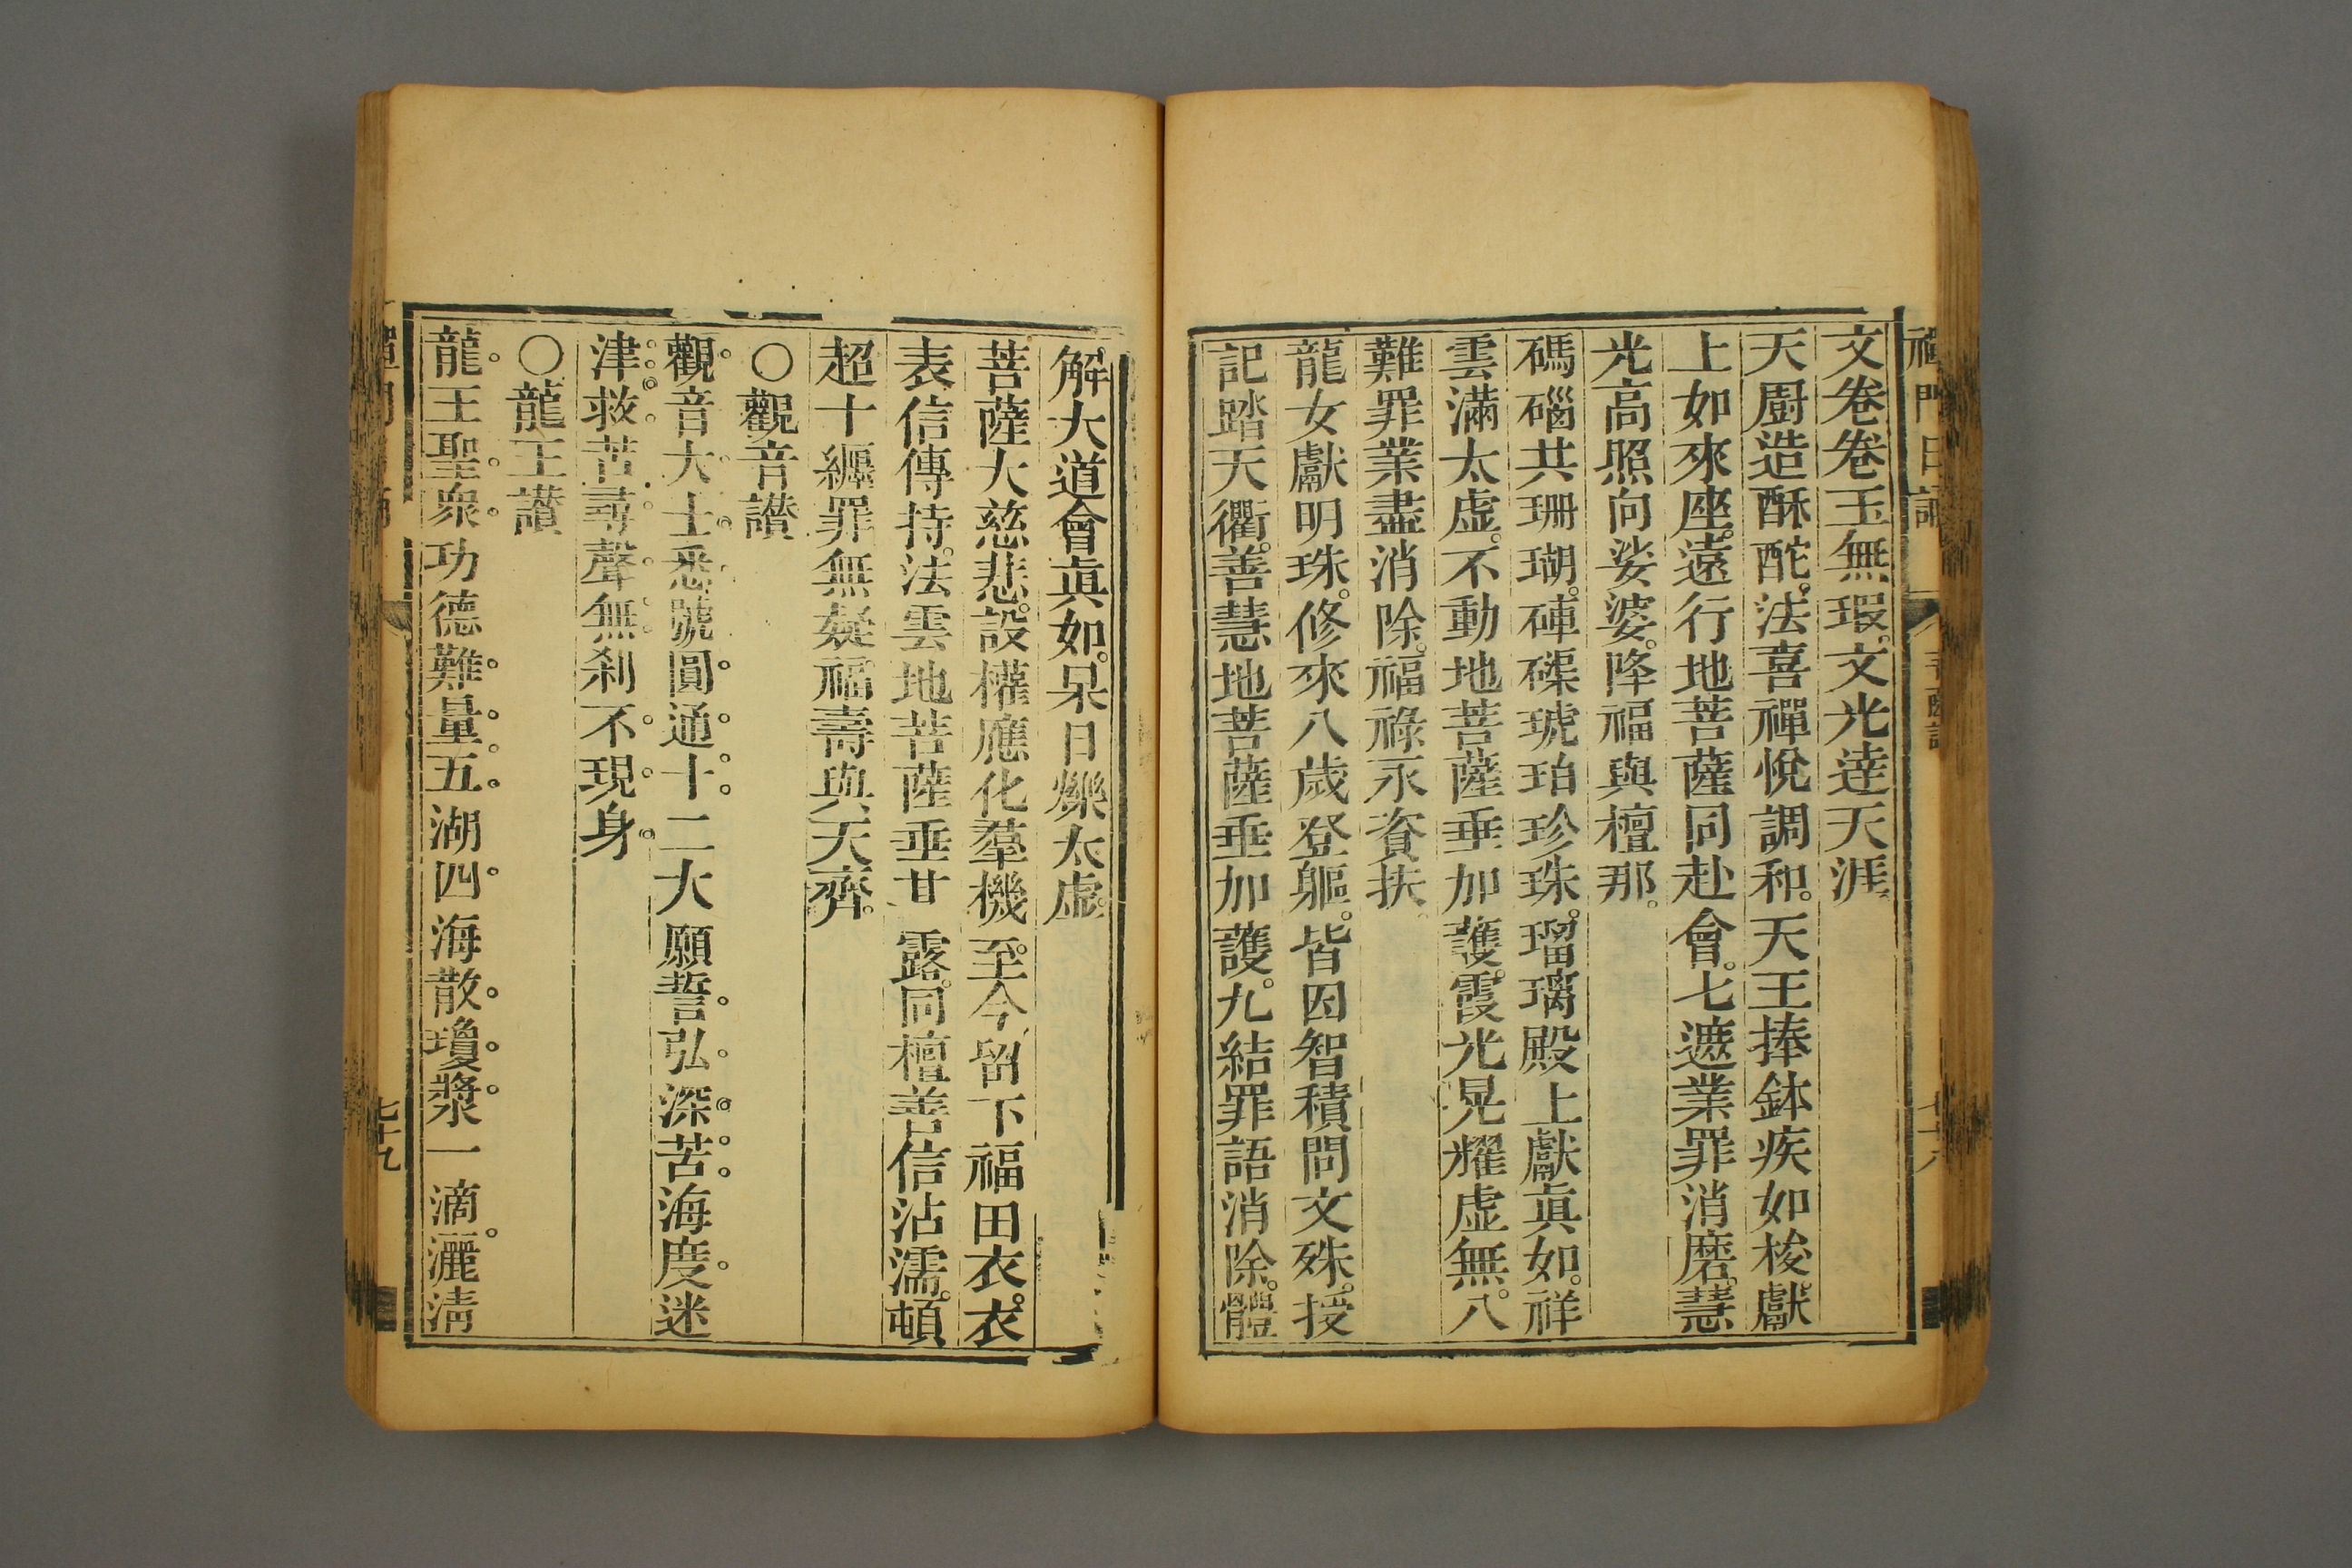 禪門日誦
七十八
文卷卷玉無瑕。文光達天涯。
天廚造酥酡。法喜禪悅調和。天王捧鉢疾如梭。獻
上如來座。遠行地菩薩同赴會。七遮業罪消磨。慧
光高照向娑婆。降福與檀那。
碼碯共珊瑚。硨磲琥珀珍珠。瑠璃殿上獻眞如。祥
雲滿太虛。不動地菩薩垂加護。霞光晃耀虛無。八
難罪業盡消除。福祿永資扶。
龍女獻明珠。修來八歲登軀。皆因智積問文殊。授
記踏天衢。善慧地菩薩垂加護。九結罪語消除。體
解大道會眞如。杲日爍太虛。
菩薩大慈悲。設權應化羣機。至今留下福田衣。衣
表信傳持。法雲地菩薩垂甘露。同檀善信沾濡。頓
超十纏罪無疑。福壽與天齊。
○觀音讃
觀音大士悉號圓通十二大願誓弘深苦海度迷
津救苦尋聲無刹不現身
○龍王讃
龍王聖衆功德難量五湖四海散瓊漿一滴灑淸
七十九